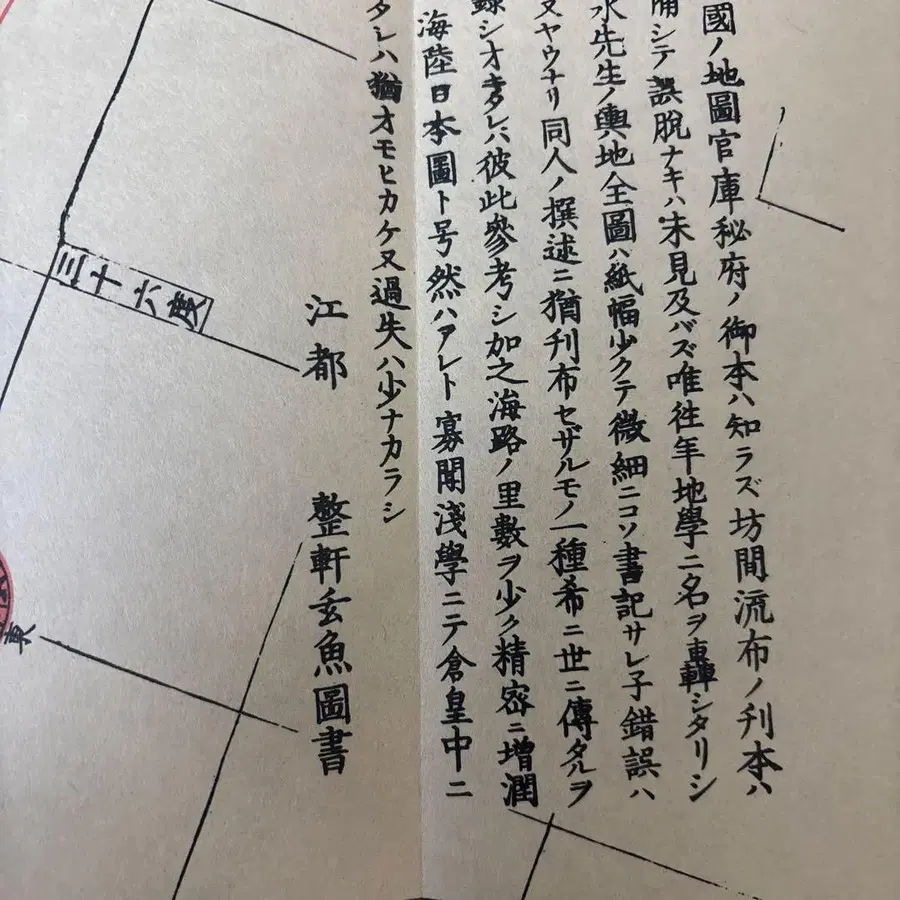 國ノ地圖官庫秘府ノ御本ハ知ラズ坊間流布ノ刋本ハ
シテ誤脱ナキハ未見及バズ唯往年地學ニ名ヲ轟シタリシ
水先生ノ輿地全圖ハ紙幅少クテ微細ニコソ書記サレ子錯誤ハ
又ヤウナリ同人ノ撰述ニ猶刋布セザルモノ一種希ニ世ニ傳タルヲ
シオキタレバ彼此參考シ加之海路ノ里數ヲ少ク精密ニ增潤
海陸日本圖ト号然ハアレト寡聞淺學ニテ倉皇中ニ
タレハ猶オモヒカケヌ過失ハ少ナカラシ
江都 整軒玄魚圖書
三十六度
東